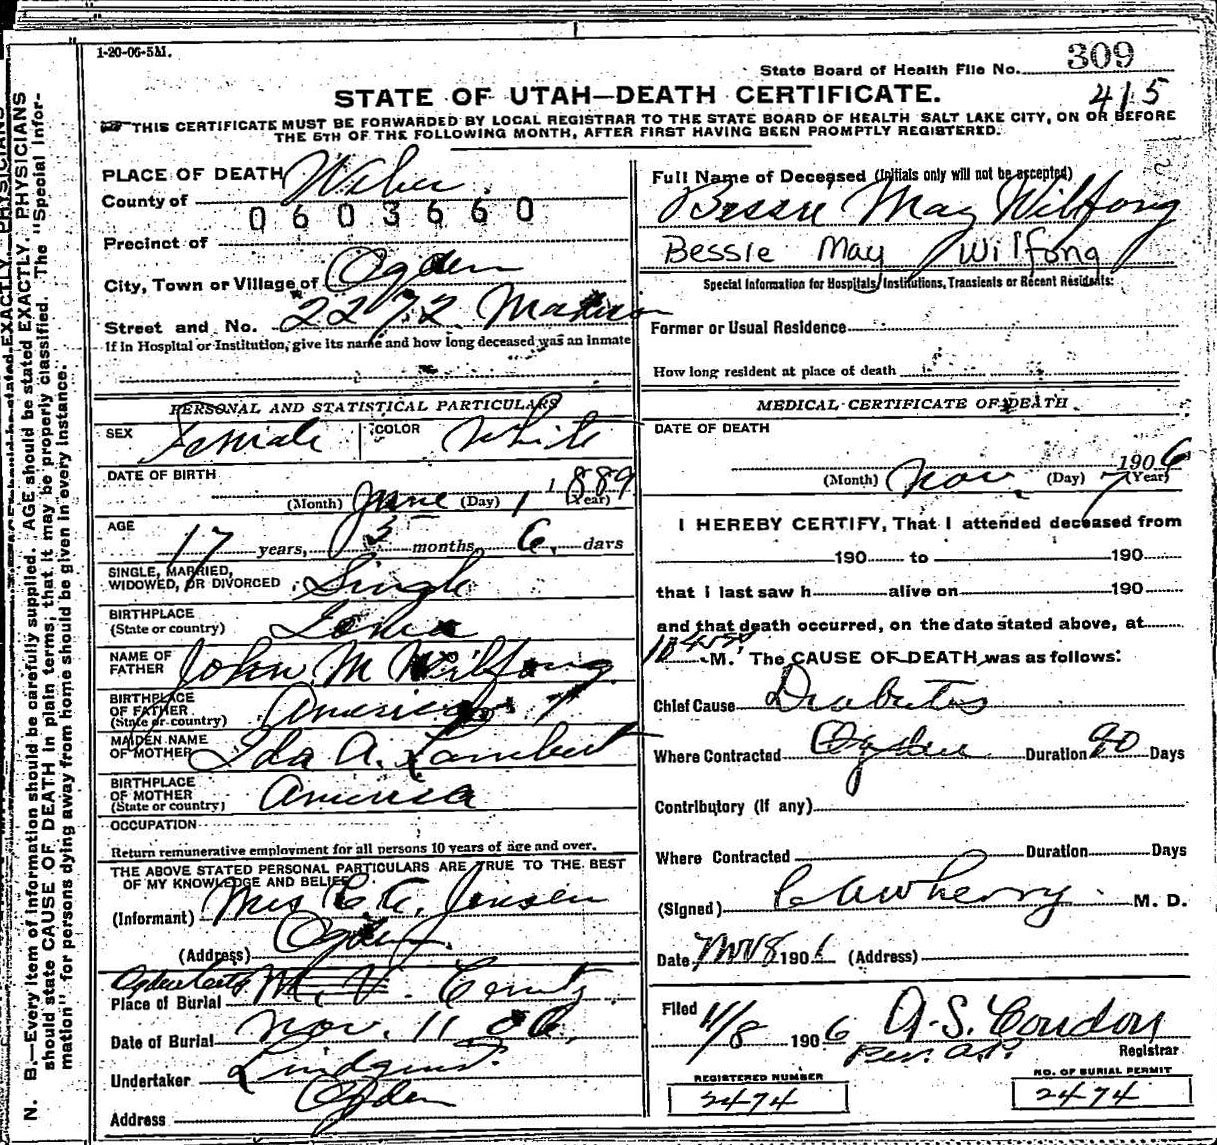 1-20-06-5M.
State Board of Health File No. 309
415
STATE OF UTAH—DEATH CERTIFICATE.
THIS CERTIFICATE MUST BE FORWARDED BY LOCAL REGISTRAR TO THE STATE BOARD OF HEALTH SALT LAKE CITY, ON OR BEFORE
THE 5TH OF THE FOLLOWING MONTH, AFTER FIRST HAVING BEEN PROMPTLY REGISTERED.
PLACE OF DEATH
County of Weber
0603660
Precinct of
City, Town or Village of Ogden
Street and No. 2272 Madison
If in Hospital or Institution, give its name and how long deceased was an inmate
Full Name of Deceased (Initials only will not be accepted)
Bessie May Wilfong
Bessie May Wilfong
Special Information for Hospitals, Institutions, Transients or Recent Residents:
Former or Usual Residence
How long resident at place of death
PERSONAL AND STATISTICAL PARTICULARS
SEX Female COLOR White
DATE OF BIRTH
(Month) June (Day) 1 1889 (Year)
AGE
17 years, 5 months 6 days
SINGLE, MARRIED,
WIDOWED, OR DIVORCED Single
BIRTHPLACE
(State or country)
NAME OF
FATHER John M Wilfong
BIRTHPLACE
OF FATHER America
(State or country)
MAIDEN NAME
OF MOTHER Ida A. Lambert
BIRTHPLACE
OF MOTHER America
(State or country)
OCCUPATION
Return remunerative employment for all persons 10 years of age and over.
THE ABOVE STATED PERSONAL PARTICULARS ARE TRUE TO THE BEST
OF MY KNOWLEDGE AND BELIEF
(Informant) Mrs C. A. Jensen
(Address) Ogden
Ogden City Mt. V. Cemty
Place of Burial
Date of Burial Nov. 11 06
Undertaker Lindquist
Address Ogden
MEDICAL CERTIFICATE OF DEATH
DATE OF DEATH
(Month) Nov. (Day) 7 1906 (Year)
I HEREBY CERTIFY, That I attended deceased from
190 to 190
that I last saw h alive on 190
and that death occurred, on the date stated above, at
M. The CAUSE OF DEATH was as follows:
Chief Cause Diabetes
Where Contracted Ogden Duration 90 Days
Contributory (if any)
Where Contracted Duration Days
(Signed) M. D.
Date Nov 8 1906 (Address)
Filed 11/8 1906 A. S. Condon
Per. A.P. Registrar
REGISTERED NUMBER
2474
NO. OF BURIAL PERMIT
2474
N. B.—Every item of information should be carefully supplied. AGE should be stated EXACTLY. PHYSICIANS
should state CAUSE OF DEATH in plain terms, that it may be properly classified. The "Special Infor-
mation" for persons dying away from home should be given in every instance.